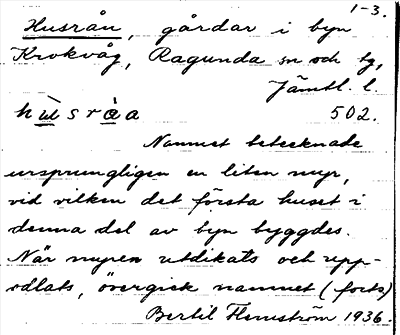 1-3.
Husrån, gårdar i byn
Krokvåg, Ragunda sn och tg,
Jämtl. l.
hùsràa 502.
Namnet betecknade
ursprungligen en liten myr,
vid vilken det första huset i
denna del av byn byggdes.
När myren utdikats och upp-
odlats, övergick namnet (forts)
Bertil Flemström 1936.